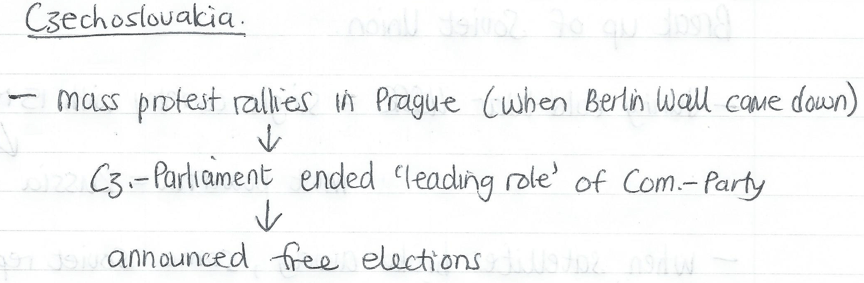 Czechoslovakia.
– mass protest rallies in Prague (when Berlin Wall came down)
↓
Cz.-Parliament ended 'leading role' of Com.-Party
↓
announced free elections